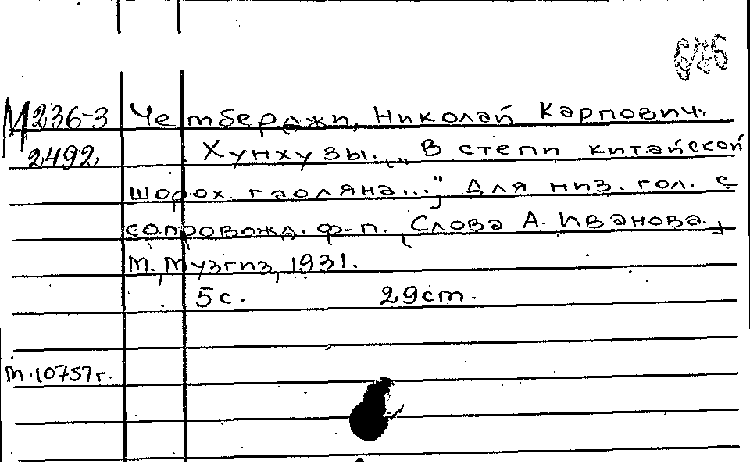 625
М236-3 Чемберджи, Николай Карпович.
2492. Хунхузы. „В степи китайской
шорох гаоляна..." Для низ. гол. с
сопровожд. ф-п. Слова А. Иванова.
М., Музгиз, 1931.
5 с. 29 cm.
М.10757г.